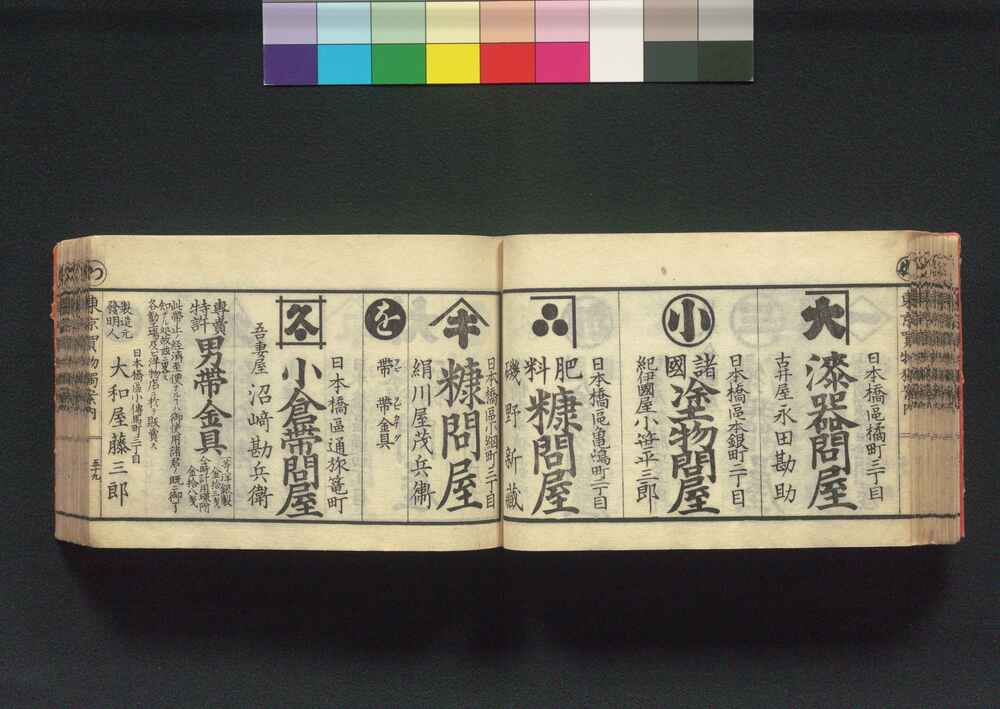 大
日本橋區橘町三丁目
漆器問屋
吉井屋永田勘助
小
日本橋區本銀町二丁目
諸國塗物問屋
紀伊國屋小笹平三郎
日本橋區亀嶋町二丁目
肥料糠問屋
磯野新藏
日本橋區小網町三丁目
糠問屋
絹川屋茂兵衞
を
帶 帶金具
久
日本橋區通旅篭町
小倉帶問屋
吾妻屋 沼﨑勘兵衞
專賣特許 男帶金具
日本橋區小傳馬町三丁目
製造元
發明人
大和屋藤三郎
東京買物獨案内
五十九
つ